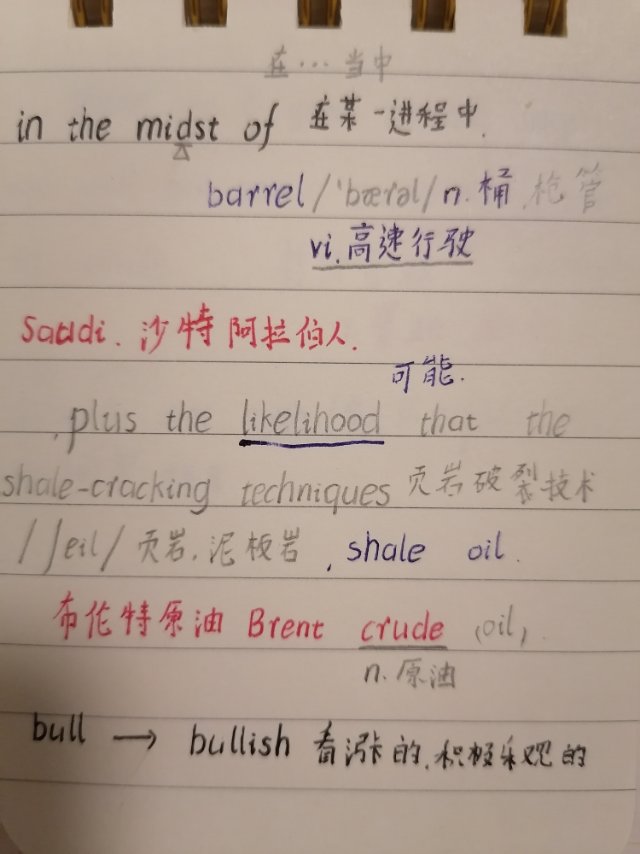 在…当中
in the midst of 在某一进程中.
barrel/'bærəl/n.桶,枪管
vi.高速行驶
Saudi.沙特阿拉伯人.
可能.
,plus the likelihood that the
shale-cracking techniques 页岩破裂技术
/ʃeil/页岩,泥板岩,shale oil.
布伦特原油 Brent crude (oil).
n.原油
bull → bullish 看涨的,积极乐观的